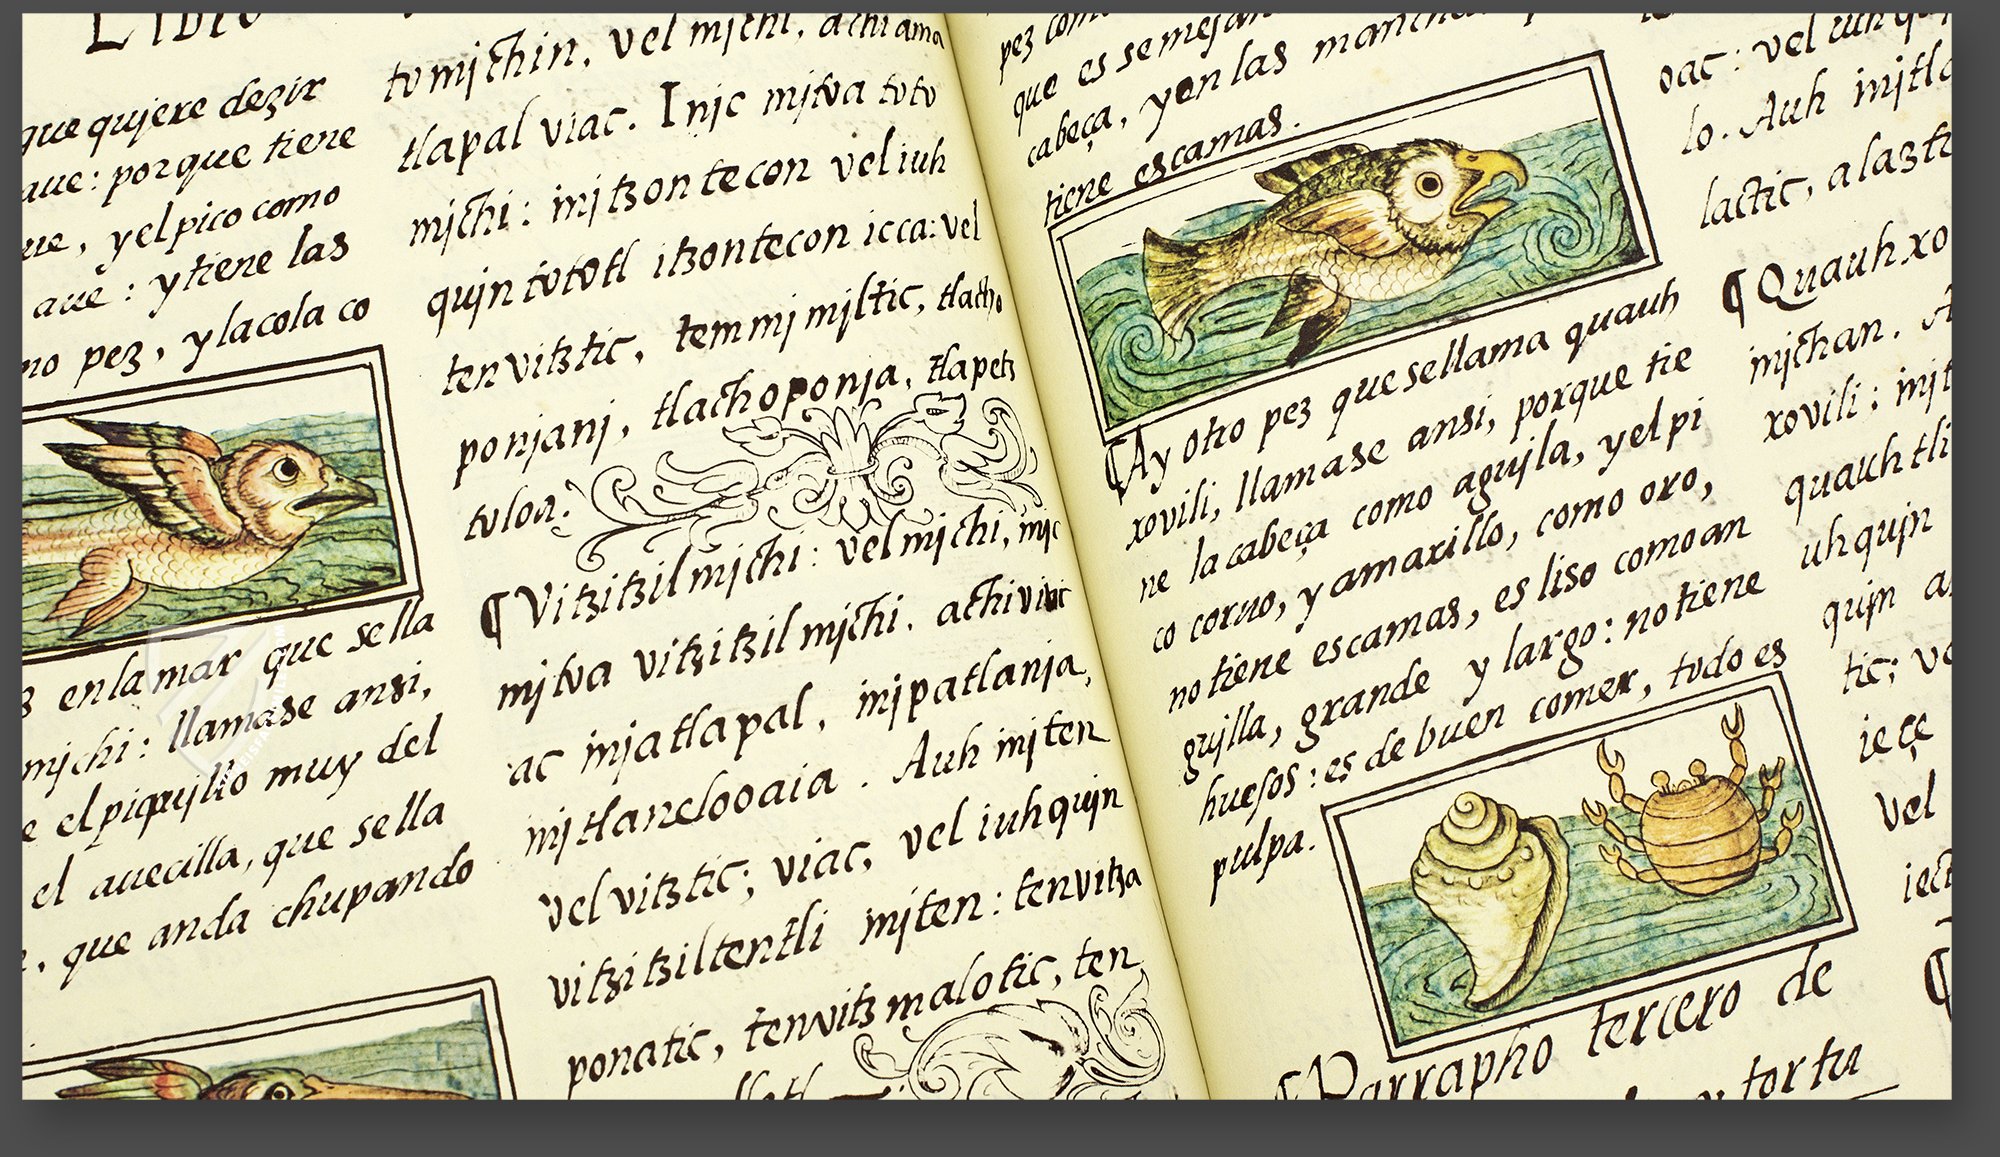 Libro
que qujere dezir
aue: porque tiene
ue, yelpico como
aue: ytiene las
mo pez, ylacola co
enlamar que sella
mjchi: llamase ansi,
e elpiqujllo muy del
el auecilla, que sella
que anda chupando
tomjchin, vel mjchi, achi ama
tlapal viac. Injc mjtoa toto
mjchi: injtzontecon vel iuh
qujn tototl itzontecon icca: vel
tenvitztic, temmimjltic, tlacho
ponjanj, tlachoponja, tlapetz
toloa.
¶ Vitzitzil mjchi: vel mjchi, injc
mjtoa vitzitzil mjchi. achi vivi
ac injatlapal, injpatlanja,
injtlanelooaia. Auh injten
vel vitztic; viac, vel iuhqujn
vitzitziltentli injten: tenvitza
ponatic, tenvitzmalotic, ten
pez como
que es semejan
cabeça, yen las manchas
tiene escamas.
¶Ay otro pez que sellama quauh
xovili, llamase ansi, porque tie
ne la cabeça como agujla, yelpi
co corvo, y amarillo, como oro,
no tiene escamas, es liso como an
gujlla, grande y largo: no tiene
huesos: es de buen comer, todo es
pulpa.
¶Parrapho tercero de
y tortu
oac: vel iuhqu
lo. Auh injtla
lactic, alaztic
¶ Quauhxo
mjchan. A
xovili: injt
quauhtli
uhqujn
qujn a
tic; ve
iece
Vel